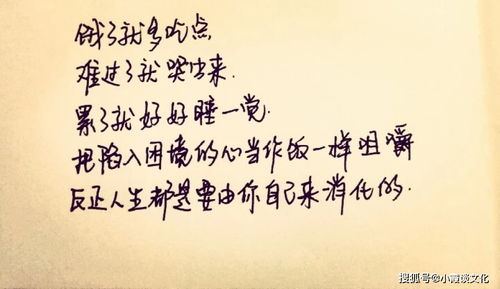 饿了就多吃点
难过了就哭出来.
累了就好好睡一觉.
把陷入困境的心当作饭一样咀嚼
反正人生都是要由你自己来消化的.
搜狐号@小霞谈文化